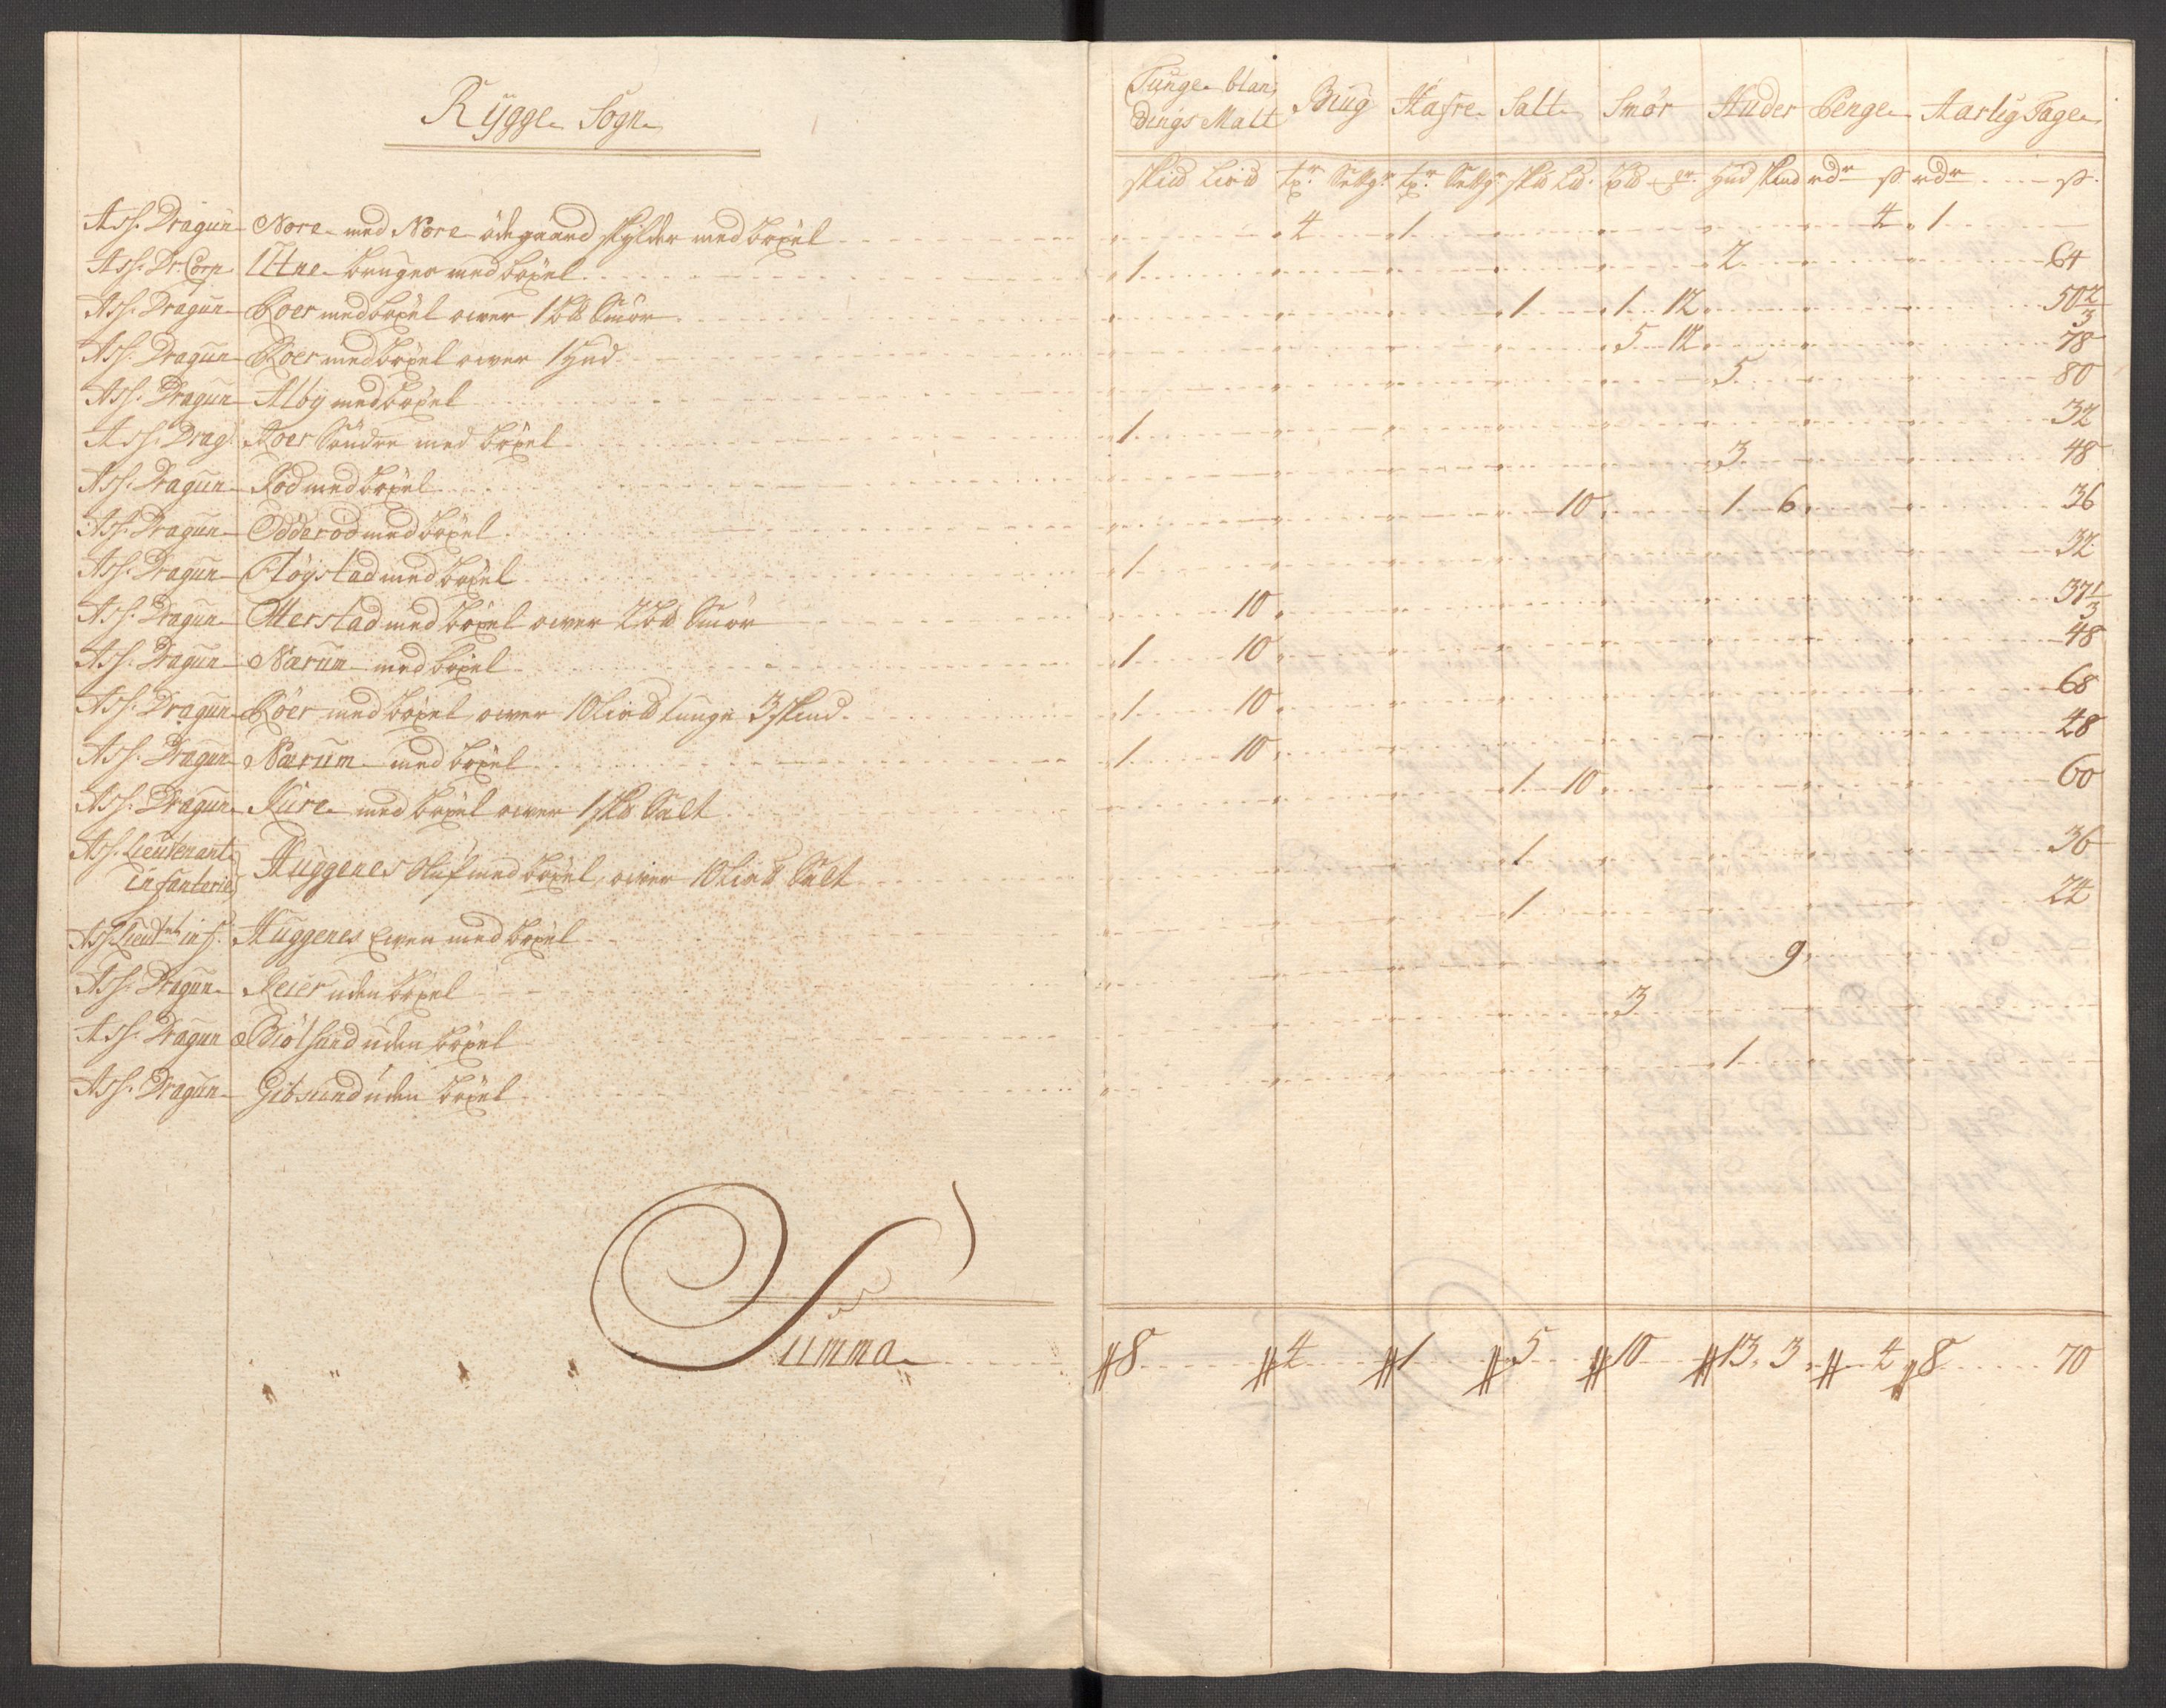 Rygge Sogn
Tunge blan, Biug Hafre Salt Smör Huder Penge Aarlig Tage
dings Malt
skiid Liud tr Setg tr Setg skid Lid bd hud skind rdr ß rdr ß
Ass. Dragun Nore med Nore ödegaard skylder med böxel 4 1 4 1
Ass. Dr: Corp Utne bruger med böxel 1 2 64
Ass. Dragun Roer med böxel ower 1 bd Smör 1 1 12 50 2/3
Ass. Dragun Roer med böxel ower 1 Hud 5 12 78
Ass. Dragun Alby med böxel 5 80
Ass. Drag: Roer Söndre med böxel 1 32
Ass. Dragun Röd med böxel 3 48
Ass. Dragun Odderöd med böxel 10 1 6 36
Ass. Dragun Flöystad med böxel 1 32
Ass. Dragun Otterstad med böxel ower 2 bd Smör 10 37 1/3
Ass. Dragun Nærum med böxel 1 10 48
Ass. Dragun Röer med böxel ower 10 Liud tunge 3 skind 1 10 68
Ass. Dragun Nærum med böxel 1 10 48
Ass. Dragun Kure med böxel ower 1 skd Salt 1 10 60
Ass. Lieutenant
infanterie Huggenes Oluf med böxel, ower 10 Liud Salt 1 36
Ass. Lieutnt inf. Huggenes Ewen med böxel 1 24
Ass. Dragun Reier uden böxel 9
Ass. Dragun Biölsund uden böxel 3
Ass. Dragun Gibsund uden böxel 1
Summa 8 4 1 5 10 13 3 4 8 70